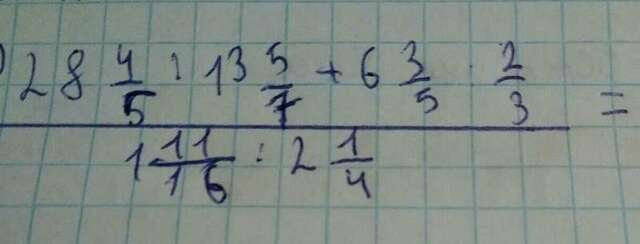 ) 28 4/5 : 13 5/7 + 6 3/5 · 2/3 =
1 11/16 : 2 1/4